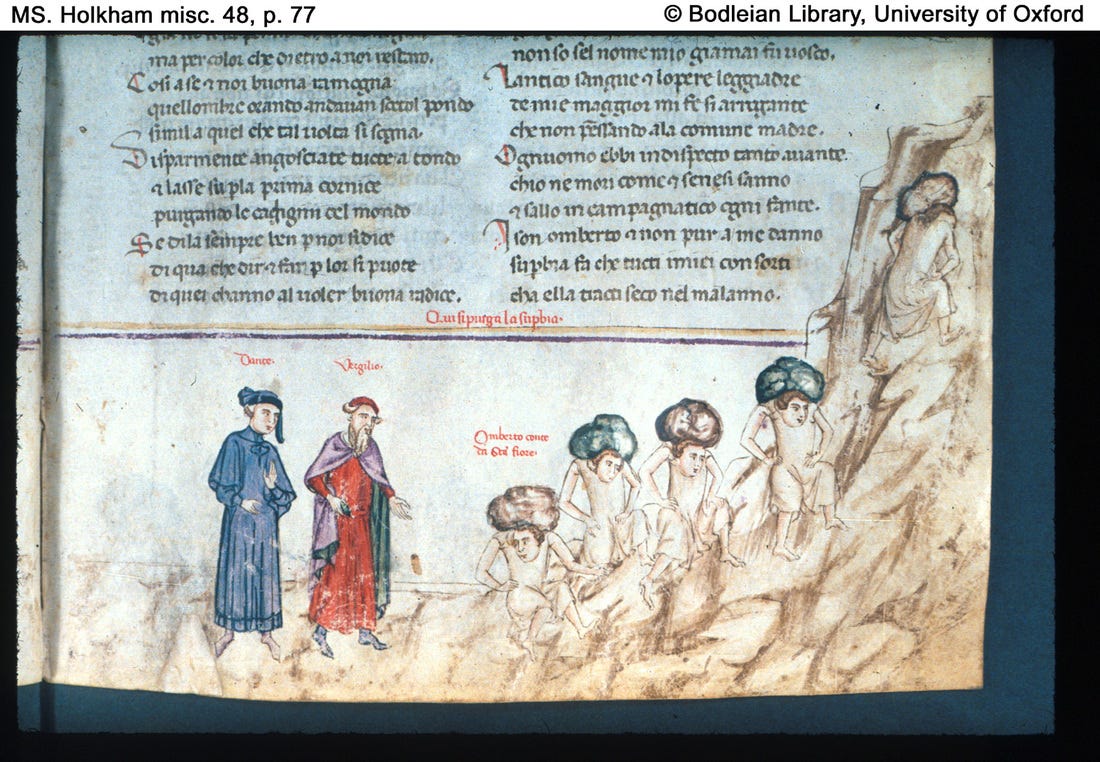 MS. Holkham misc. 48, p. 77
© Bodleian Library, University of Oxford
ma per color che dietro a noi restaro.
Cosi a se ⁊ noi buona ramogna
quellombre orando andauan sottol pondo
simil a quel che tal uolta si sogna.
Disparmente angosciate tucte a tondo
⁊ lasse su p la prima cornice
purgando le caligini del mondo
Se di la sempre ben p noi si dice
di qua che dir ⁊ far p lor si puote
di quei channo al uoler buona radice.
non so sel nome mio giamai fu uosco.
Lantico sangue ⁊ lopere leggiadre
de mie maggior mi fe si arrogante
che non pēsando ala comune madre.
Ognuomo ebbi in dispecto tanto auante.
chio ne mori come ⁊ senesi sanno
⁊ sallo in campagnatico ogni fante.
I son omberto ⁊ non pur a me danno
supbia fa che tucti imiei consorti
cha ella tracti seco nel malanno.
Qui si purga la supbia.
Dante.
Vergilio.
Omberto conte
da Sta fiore.